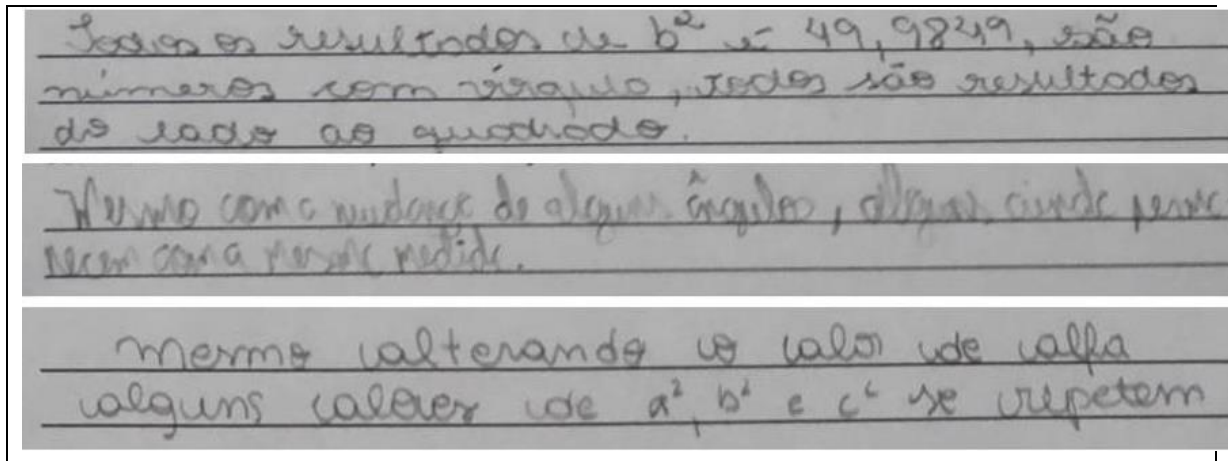 Todos os resultados de b² é 49,9849, são
números com vírgula, todos são resultados
do lado ao quadrado.
Mesmo com a mudança de alguns ângulos, alguns ainda perma
necem com a mesma medida.
mesmo alterando o valor de alfa
alguns valores de a², b² e c² se repetem